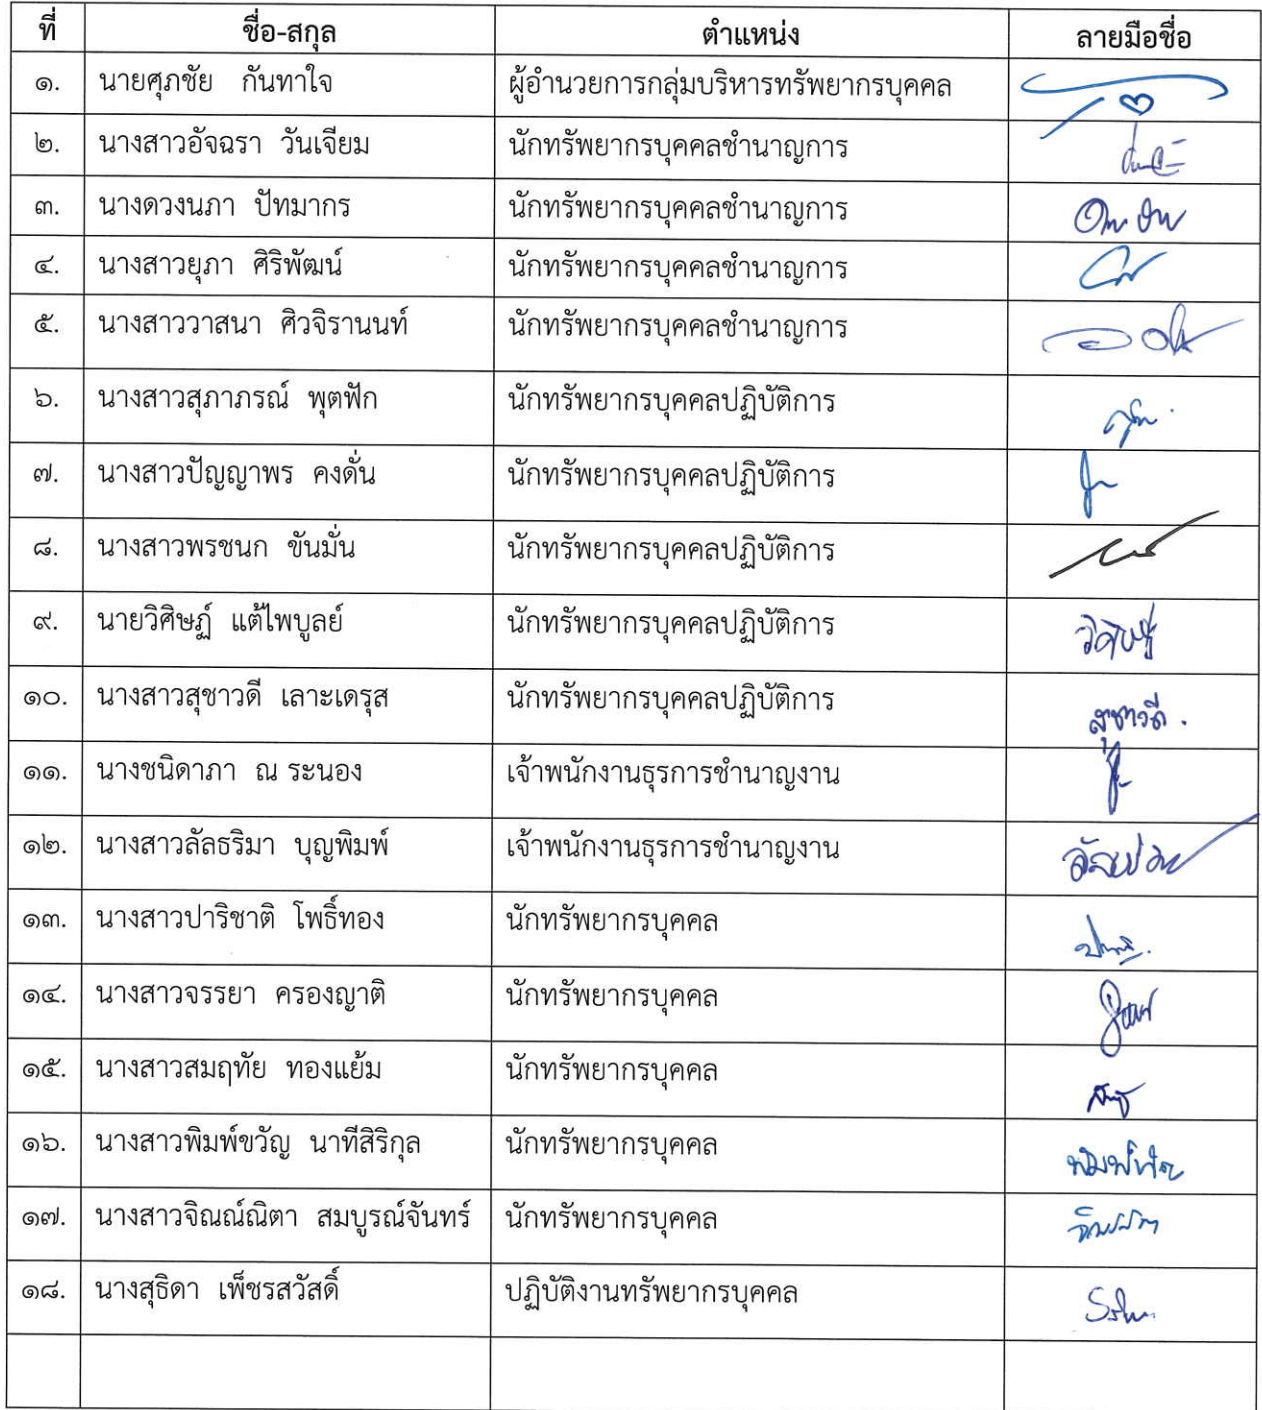 ที่ ชื่อ-สกุล ตำแหน่ง ลายมือชื่อ
๑. นายศุภชัย กันทาใจ ผู้อำนวยการกลุ่มบริหารทรัพยากรบุคคล
๒. นางสาวอัจฉรา วันเจียม นักทรัพยากรบุคคลชำนาญการ
๓. นางดวงนภา ปัทมากร นักทรัพยากรบุคคลชำนาญการ
๔. นางสาวยุภา ศิริพัฒน์ นักทรัพยากรบุคคลชำนาญการ
๕. นางสาววาสนา ศิวจิรานนท์ นักทรัพยากรบุคคลชำนาญการ
๖. นางสาวสุภาภรณ์ พุตฟัก นักทรัพยากรบุคคลปฏิบัติการ
๗. นางสาวปัญญาพร คงดั่น นักทรัพยากรบุคคลปฏิบัติการ
๘. นางสาวพรชนก ขันมั่น นักทรัพยากรบุคคลปฏิบัติการ
๙. นายวิศิษฏ์ แต้ไพบูลย์ นักทรัพยากรบุคคลปฏิบัติการ วิศิษฏ์
๑๐. นางสาวสุชาวดี เลาะเดรุส นักทรัพยากรบุคคลปฏิบัติการ สุชาวดี.
๑๑. นางชนิดาภา ณ ระนอง เจ้าพนักงานธุรการชำนาญงาน
๑๒. นางสาวลัลธริมา บุญพิมพ์ เจ้าพนักงานธุรการชำนาญงาน
๑๓. นางสาวปาริชาติ โพธิ์ทอง นักทรัพยากรบุคคล
๑๔. นางสาวจรรยา ครองญาติ นักทรัพยากรบุคคล
๑๕. นางสาวสมฤทัย ทองแย้ม นักทรัพยากรบุคคล
๑๖. นางสาวพิมพ์ขวัญ นาทีสิริกุล นักทรัพยากรบุคคล พิมพ์ขวัญ
๑๗. นางสาวจิณณ์ณิตา สมบูรณ์จันทร์ นักทรัพยากรบุคคล
๑๘. นางสุธิดา เพ็ชรสวัสดิ์ ปฏิบัติงานทรัพยากรบุคคล